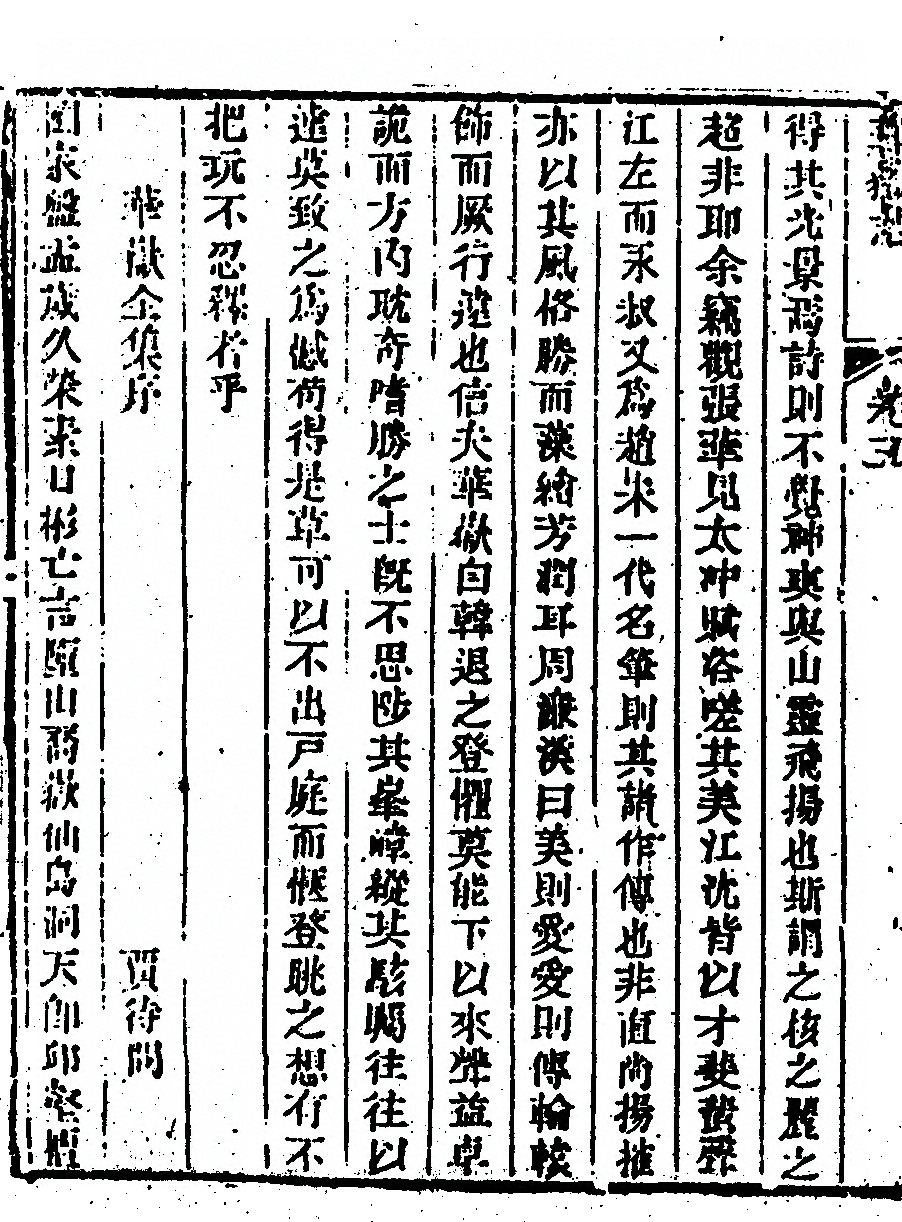 卷三
得其光景焉詩則不覺神爽與山靈飛揚也斯謂之核之麗之
超非耶余竊觀張華見太冲賦咨嗟其美江沈皆以才斐蜚聲
江左而永淑又為趙宋一代名筆則其議作傳也非直尚揚搉
亦以其風格勝而藻繪芳潤耳周濂溪曰美則愛愛則傳輪轅
飾而厥行遠也信夫華嶽自韓退之登懼莫能下以來聲益卓
詭而方內耽奇嗜勝之士既不思陟其峯嶂縱其駭矚往往以
遠莫致之為憾苟得是草可以不出戶庭而愜登眺之想有不
把玩不忍釋者乎
華嶽全集序
賈待問
國家盤盂歲久榮 日彬亡言 山 嶽仙島洞天 邱壑